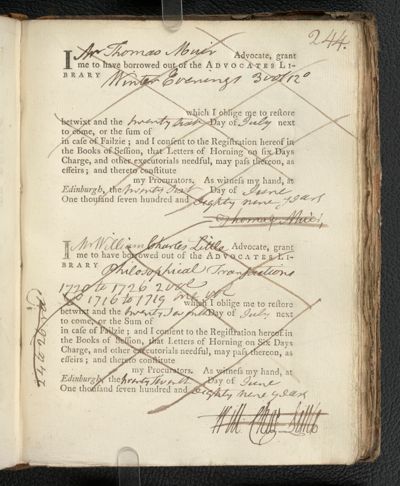 244.
I Mr Thomas Muir Advocate, grant
me to have borrowed out of the ADVOCATES LI-
BRARY Winter Evenings 3 vol 12o
which I oblige me to restore
betwixt and the twenty first Day of July next
to come, or the sum of
in case of Failzie; and I consent to the Registration hereof in
the Books of Session, that Letters of Horning on six Days
Charge, and other executorials needful, may pass thereon, as
effeirs; and thereto constitute
my Procurators. As witness my hand, at
Edinburgh, the twenty first Day of June
One thousand seven hundred and eighty nine years
Thomas Muir
I Mr William Charles Little Advocate, grant
me to have borrowed out of the ADVOCATES LI-
BRARY Philosophical Transactions
1720 to 1726 2 vol
1716 to 1719 one vol
which I oblige me to restore
betwixt and the twenty Day of July next
to come, or the Sum of
in case of Failzie; and I consent to the Registration hereof in
the Books of Session, that Letters of Horning on Six Days
Charge, and other executorials needful, may pass thereon, as
effeirs; and thereto constitute
my Procurators. As witness my hand, at
Edinburgh, the twenty Day of June
One thousand seven hundred and eighty nine years
Will Char Little